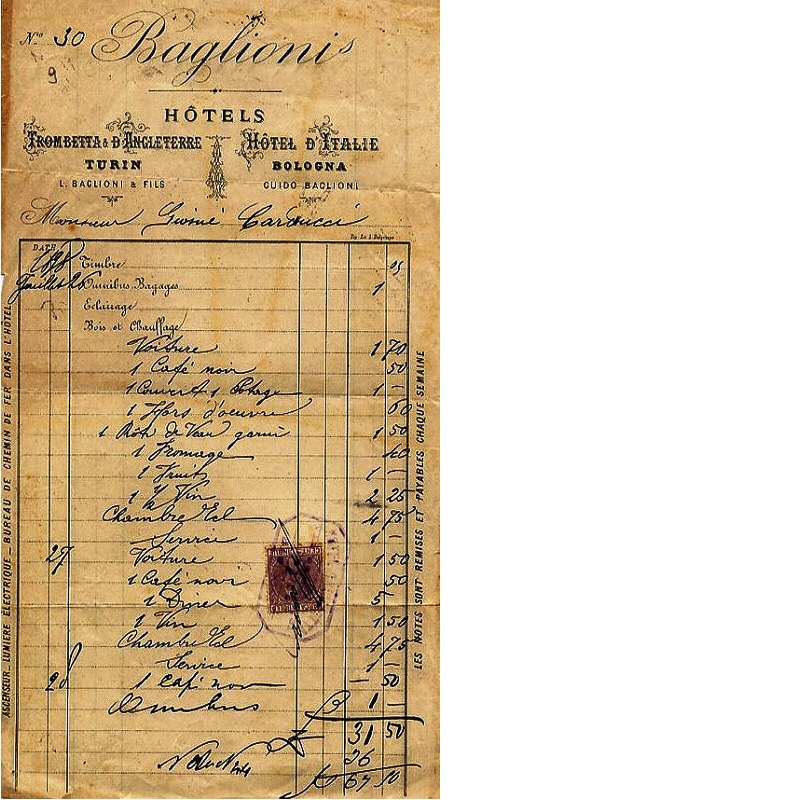 No 30
9
Baglioni
HÔTELS
TROMBETTA & D'ANGLETERRE
TURIN
L. BAGLIONI & FILS
HÔTEL D'ITALIE
BOLOGNA
GUIDO BAGLIONI
Monsieur Giosuè Carducci
DATE
1898 Timbre 05
Juillet 26 Omnibus, Bagages 1
Eclairage
Bois et Chauffage
Voiture 1 70
1 Café noir 50
1 Couvert 1 Potage 1 —
1 Hors d'oeuvre 60
1 Rôti de Veau garni 1 50
1 Fromage 40
1 Fruit 1 —
1 Vin 2 25
Chambre Ecl 4 75
Service 1 —
27 Voiture 1 50
1 Café noir 50
1 Diner 5
1 Vin 1 50
Chambre Ecl 4 75
Service 1 —
28 1 Café noir — 50
Omnibus 1 —
31 50
36
67 50
ASCENSEUR _ LUMIERE ÉLECTRIQUE _ BUREAU DE CHEMIN DE FER DANS L'HÔTEL
LES NOTES SONT REMISES ET PAYABLES CHAQUE SEMAINE